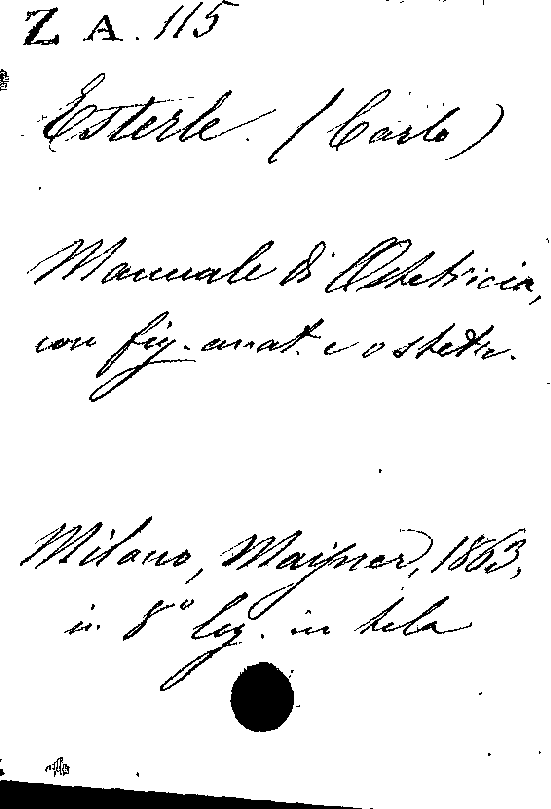 Z A. 115
Esterle. (Carlo)
Manuale di Ostetricia,
con fig. anat. e ostetr.
Milano, Maisner, 1863,
in 8° leg. in tela